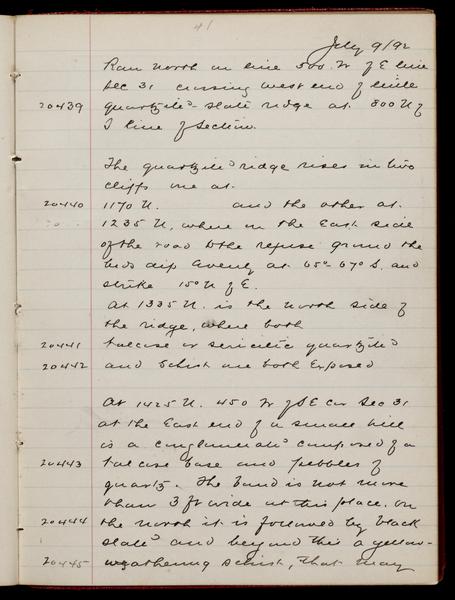 41
July 9/92
Ran North on line 500 W of E line
Sec 31 crossing west end of little
20439 quartzite - slate ridge at 800 N of
S line of section.
The quartzite ridge rises in two
cliffs one at
20440 1170 N. and the other at
1235 N, where on the East side
of the road to the refuse ground the
beds dip evenly at 65°-67° S. and
strike 15° N of E.
At 1335 N. is the north side of
the ridge, where both
20441 talcose or sericitic quartzite
20442 and schist are both exposed
At 1425 N. 450 W of SE cor Sec 31
at the East end of a small hill
is a conglomerate composed of a
20443 talcose base and pebbles of
quartz. The band is not more
than 3 ft wide at this place. On
20444 the north it is followed by black
slate and beyond this a yellow-
20445 weathering schist, that may